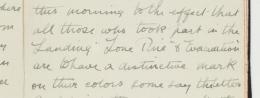 this morning to the effect that
all those who took part in the
Landing "Lone Pine" & Evacuation
are to have a distinctive mark
on their colors some say